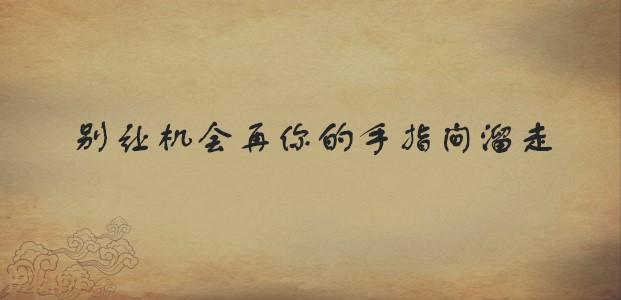 别让机会再你的手指间溜走